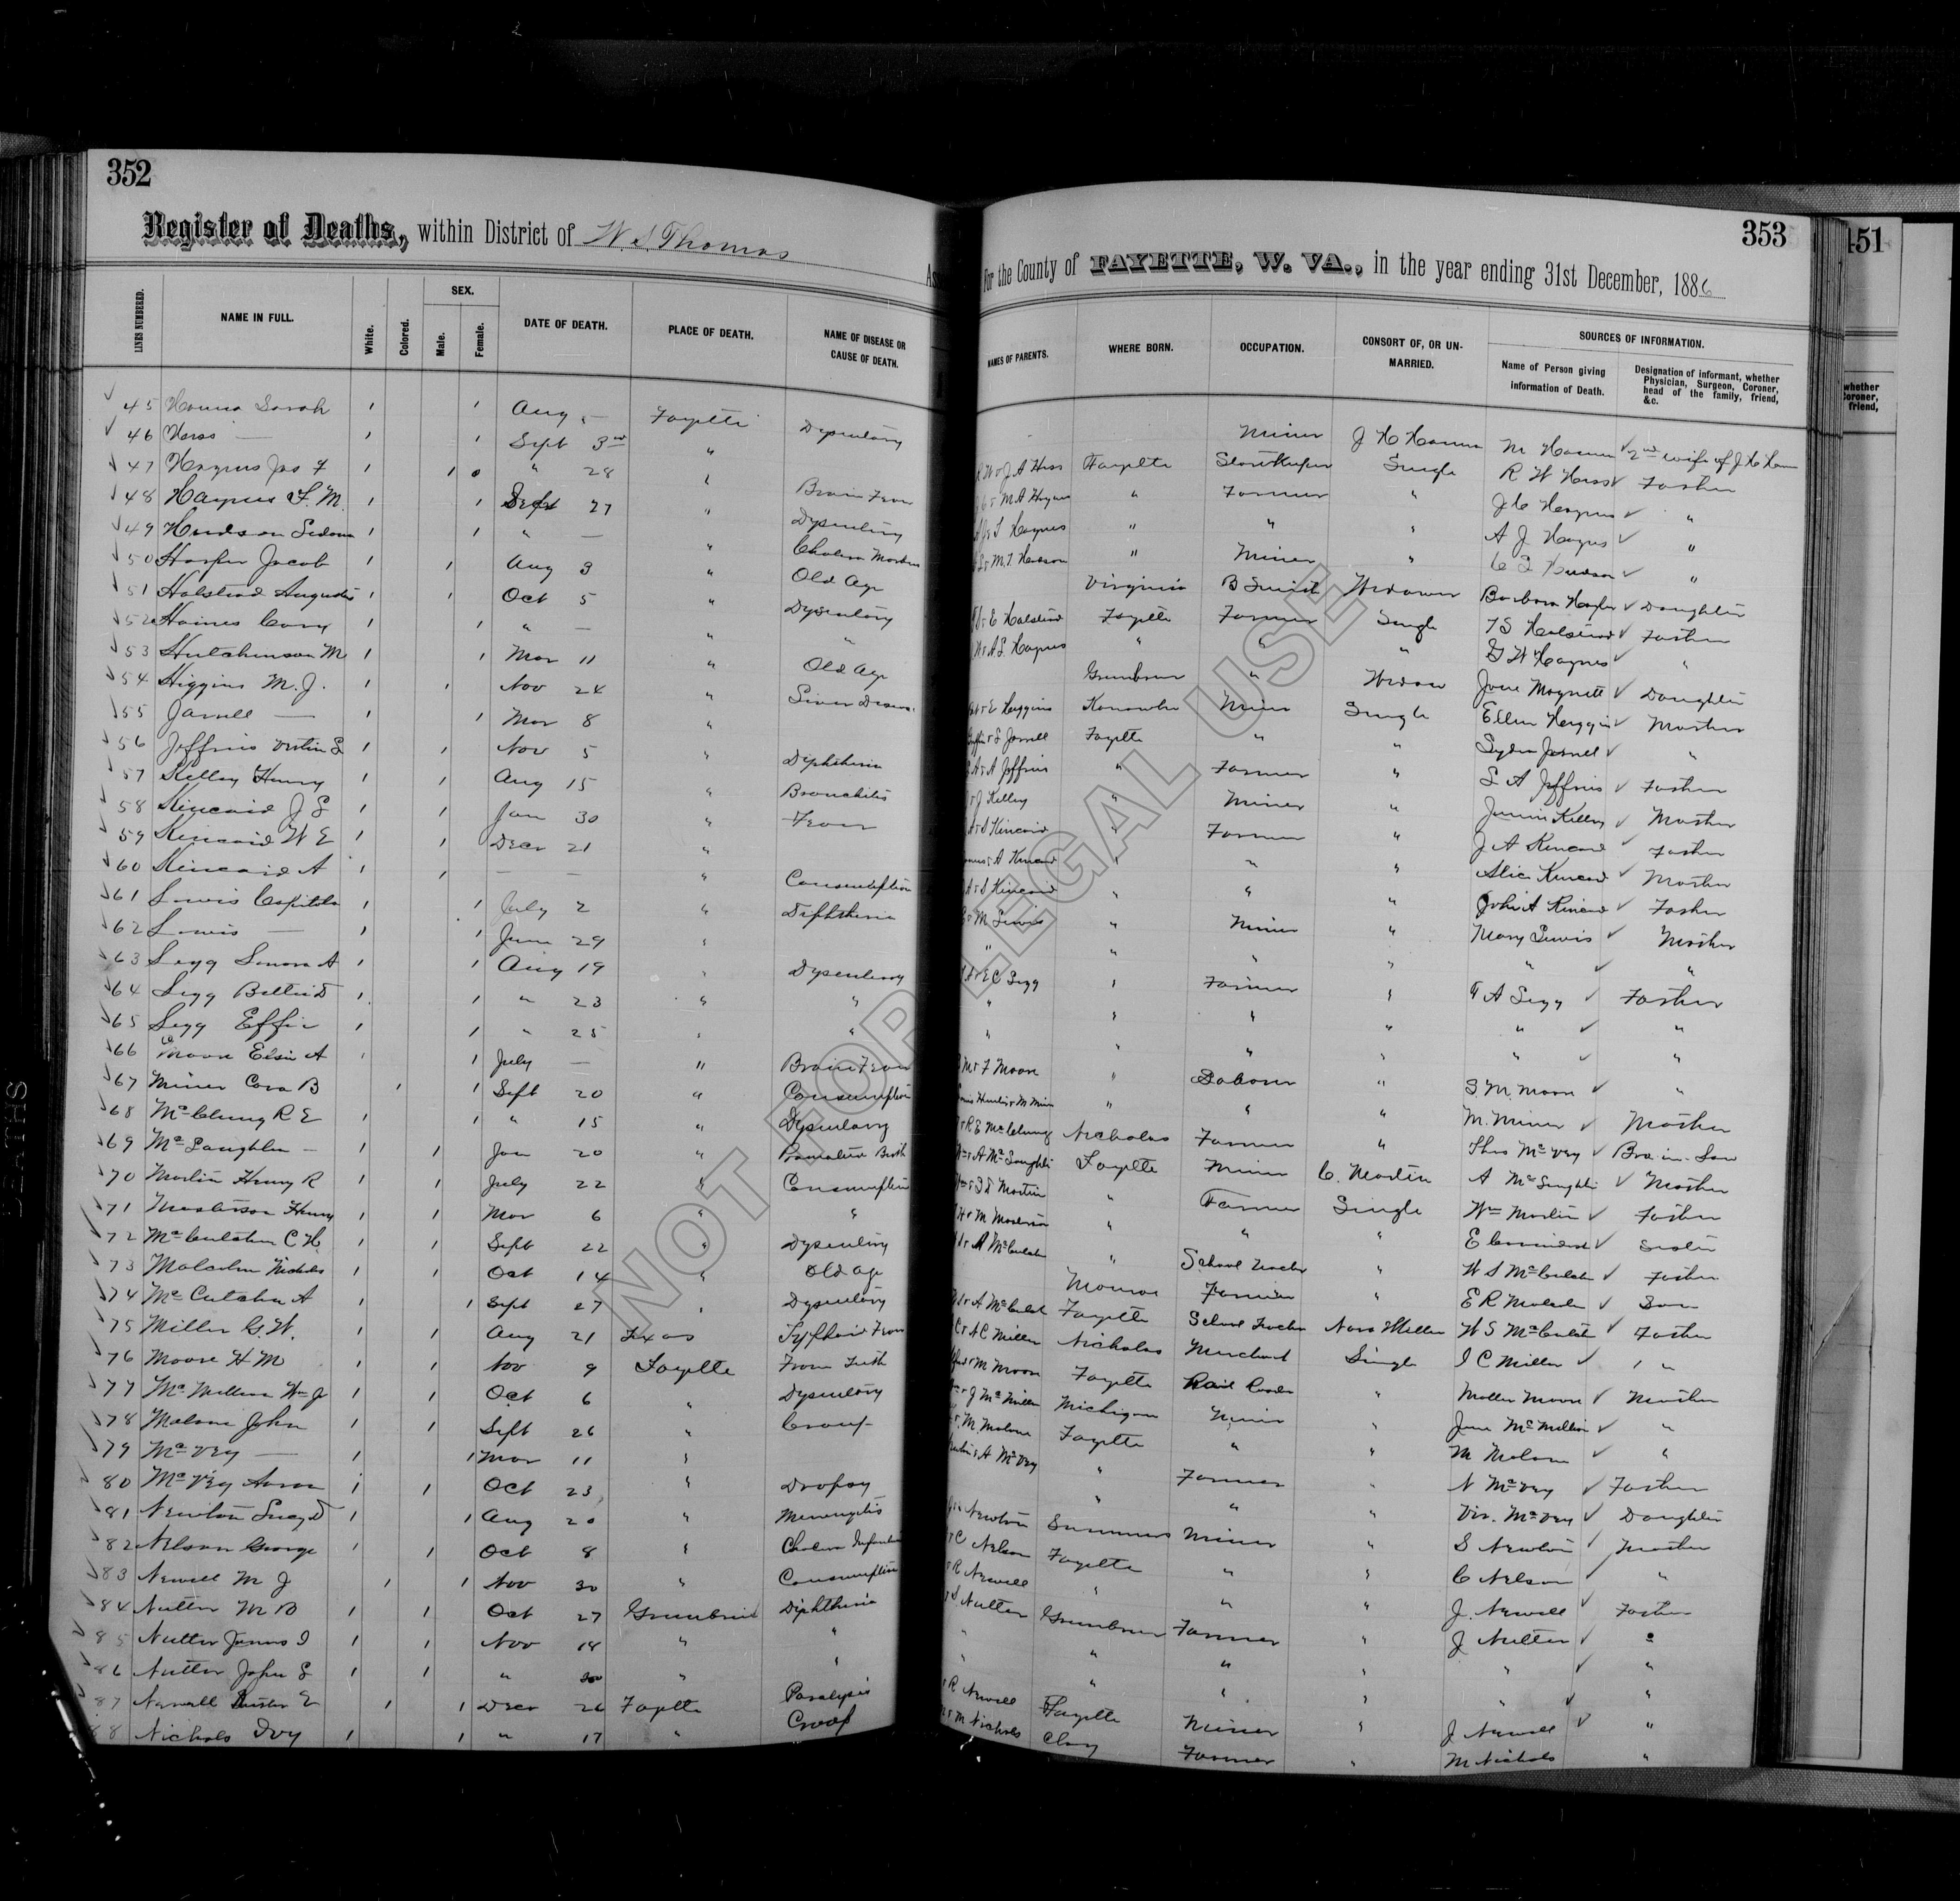 352
Register of Deaths, within District of W. S. Thomas
Ass
LINES NUMBERED. NAME IN FULL. White. Colored. SEX. Male. Female. DATE OF DEATH. PLACE OF DEATH. NAME OF DISEASE OR CAUSE OF DEATH.
45 Hanna Sarah 1 1 Aug — Fayette Dysentery
46 Hess — 1 1 Sept 3rd "
47 Haynes Jas F 1 1 " 28 " Brain Fever
48 Haynes F. M. 1 1 Sept 27 " Dysentery
49 Hudson 1 1 " — " Cholera Morbus
50 Harper Jacob 1 1 Aug 3 " Old Age
51 Halstead Augustus 1 1 Oct 5 " Dysentery
52 Haines Cora 1 1 " — " "
53 Hutchinson M 1 1 Mar 11 " Old Age
54 Higgins M. J. 1 1 Nov 24 " Liver Disease
55 Jarrell — 1 1 Mar 8 "
56 Jeffries L 1 1 Nov 5 " Diphtheria
57 Kelley Henry 1 1 Aug 15 " Bronchitis
58 Kincaid J L 1 1 Jan 30 " Fever
59 Kincaid W E 1 1 Decr 21 "
60 Kincaid A 1 1 — — " Consumption
61 Lewis Capitola 1 1 July 2 " Diphtheria
62 Lewis — 1 1 June 29 "
63 Legg Lenora A 1 1 Aug 19 " Dysentery
64 Legg 1 1 " 23 " "
65 Legg Effie 1 1 " 25 " "
66 Moore Elsie A 1 1 July — " Brain Fever
67 Miner Cora B 1 1 Sept 20 " Consumption
68 McClung R E 1 1 " 15 " Dysentery
69 McLaughlin — 1 1 Jan 20 " Premature Birth
70 Martin Henry R 1 1 July 22 " Consumption
71 Masterson Henry 1 1 Mar 6 " "
72 McCutchen C H. 1 1 Sept 22 " Dysentery
73 Malcolm Nicholas 1 1 Oct 14 " Old age
74 McCutchen A 1 1 Sept 27 " Dysentery
75 Miller G. W. 1 1 Aug 21 Texas Typhoid Fever
76 Moore H M 1 1 Nov 9 Fayette From Teeth
77 McMillion Wm J 1 1 Oct 6 " Dysentery
78 Malone John 1 1 Sept 26 " Croup
79 McVey — 1 1 Mar 11 "
80 McVey Aaron 1 1 Oct 23 " Dropsy
81 Newton Lucy D 1 1 Aug 20 " Meningitis
82 Nelson George 1 1 Oct 8 " Cholera Infantum
83 Newell M J 1 1 Nov 30 " Consumption
84 Nutter M B 1 1 Oct 27 Greenbrier Diphtheria
85 Nutter James I 1 1 Nov 18 " "
86 Nutter John S 1 1 " 30 " "
87 Newell E 1 1 Decr 26 Fayette Paralysis
88 Nichols Ivy 1 1 " 17 " Croup
353
For the County of FAYETTE, W. VA., in the year ending 31st December, 1886
NAMES OF PARENTS. WHERE BORN. OCCUPATION. CONSORT OF, OR UN-MARRIED. SOURCES OF INFORMATION.
Name of Person giving information of Death. Designation of informant, whether Physician, Surgeon, Coroner, head of the family, friend, &c.
Miner J H Hanna M Hanna 2nd wife of J H
R W & J A Hess Fayette Storekeeper Single R W Hess Father
M A Haynes " Farmer " J C Haynes "
Haynes " " " A J Haynes "
M. F. Hudson " Miner " Hudson "
Virginia B Smith Widower Barbara Harper Daughter
E Halstead Fayette Farmer Single T S Halstead Father
Haynes " " " G W Haynes "
Greenbrier " Widow Jane Daughter
E Higgins Kanawha Miner Single Ellen Higgins Mother
S Jarrell Fayette " " Jarrell "
A Jeffries " Farmer " L A Jeffries Father
J Kelley " Miner " Kelley Mother
S Kincaid " Farmer " J A Kincaid Father
A Kincaid " " " Alice Kincaid Mother
S Kincaid " " " John A Kincaid Father
M Lewis " Miner " Mary Lewis Mother
" " " " " "
E C Legg " Farmer " A Legg Father
" " " " " "
" " " " " "
F Moore " Laborer " S. M. Moore "
M Miner " " " M. Miner Mother
R E McClung Nicholas Farmer " Thos McVey Bro-in-Law
A McLaughlin Fayette Miner C. Martin A McLaughlin Mother
Martin " Farmer Single Wm Martin Father
M Masterson " " " E Sister
A McCutchen " School Teacher " W S McCutchen Father
Monroe Farmer " E R Malcolm Son
A McCutchen Fayette School Teacher Nora Miller W S McCutchen Father
A C Miller Nicholas Merchant Single I C Miller "
M Moore Fayette Rail Roader " Mollie Moore Mother
J McMillion Michigan Miner " Jane McMillion "
M. Malone Fayette " " M Malone "
A McVey " Farmer " N McVey Father
" " " Vir. McVey Daughter
Newton Summers Miner " S Newton Mother
C Nelson Fayette " " C Nelson "
R Newell " " " J. Newell Father
S Nutter Greenbrier Farmer " J Nutter "
" " " " " "
" " " " " "
R Newell Fayette Miner " J Newell "
M Nichols Clay Farmer " M Nichols "
451
whether
Coroner,
friend,
DEATHS
NOT FOR LEGAL USE